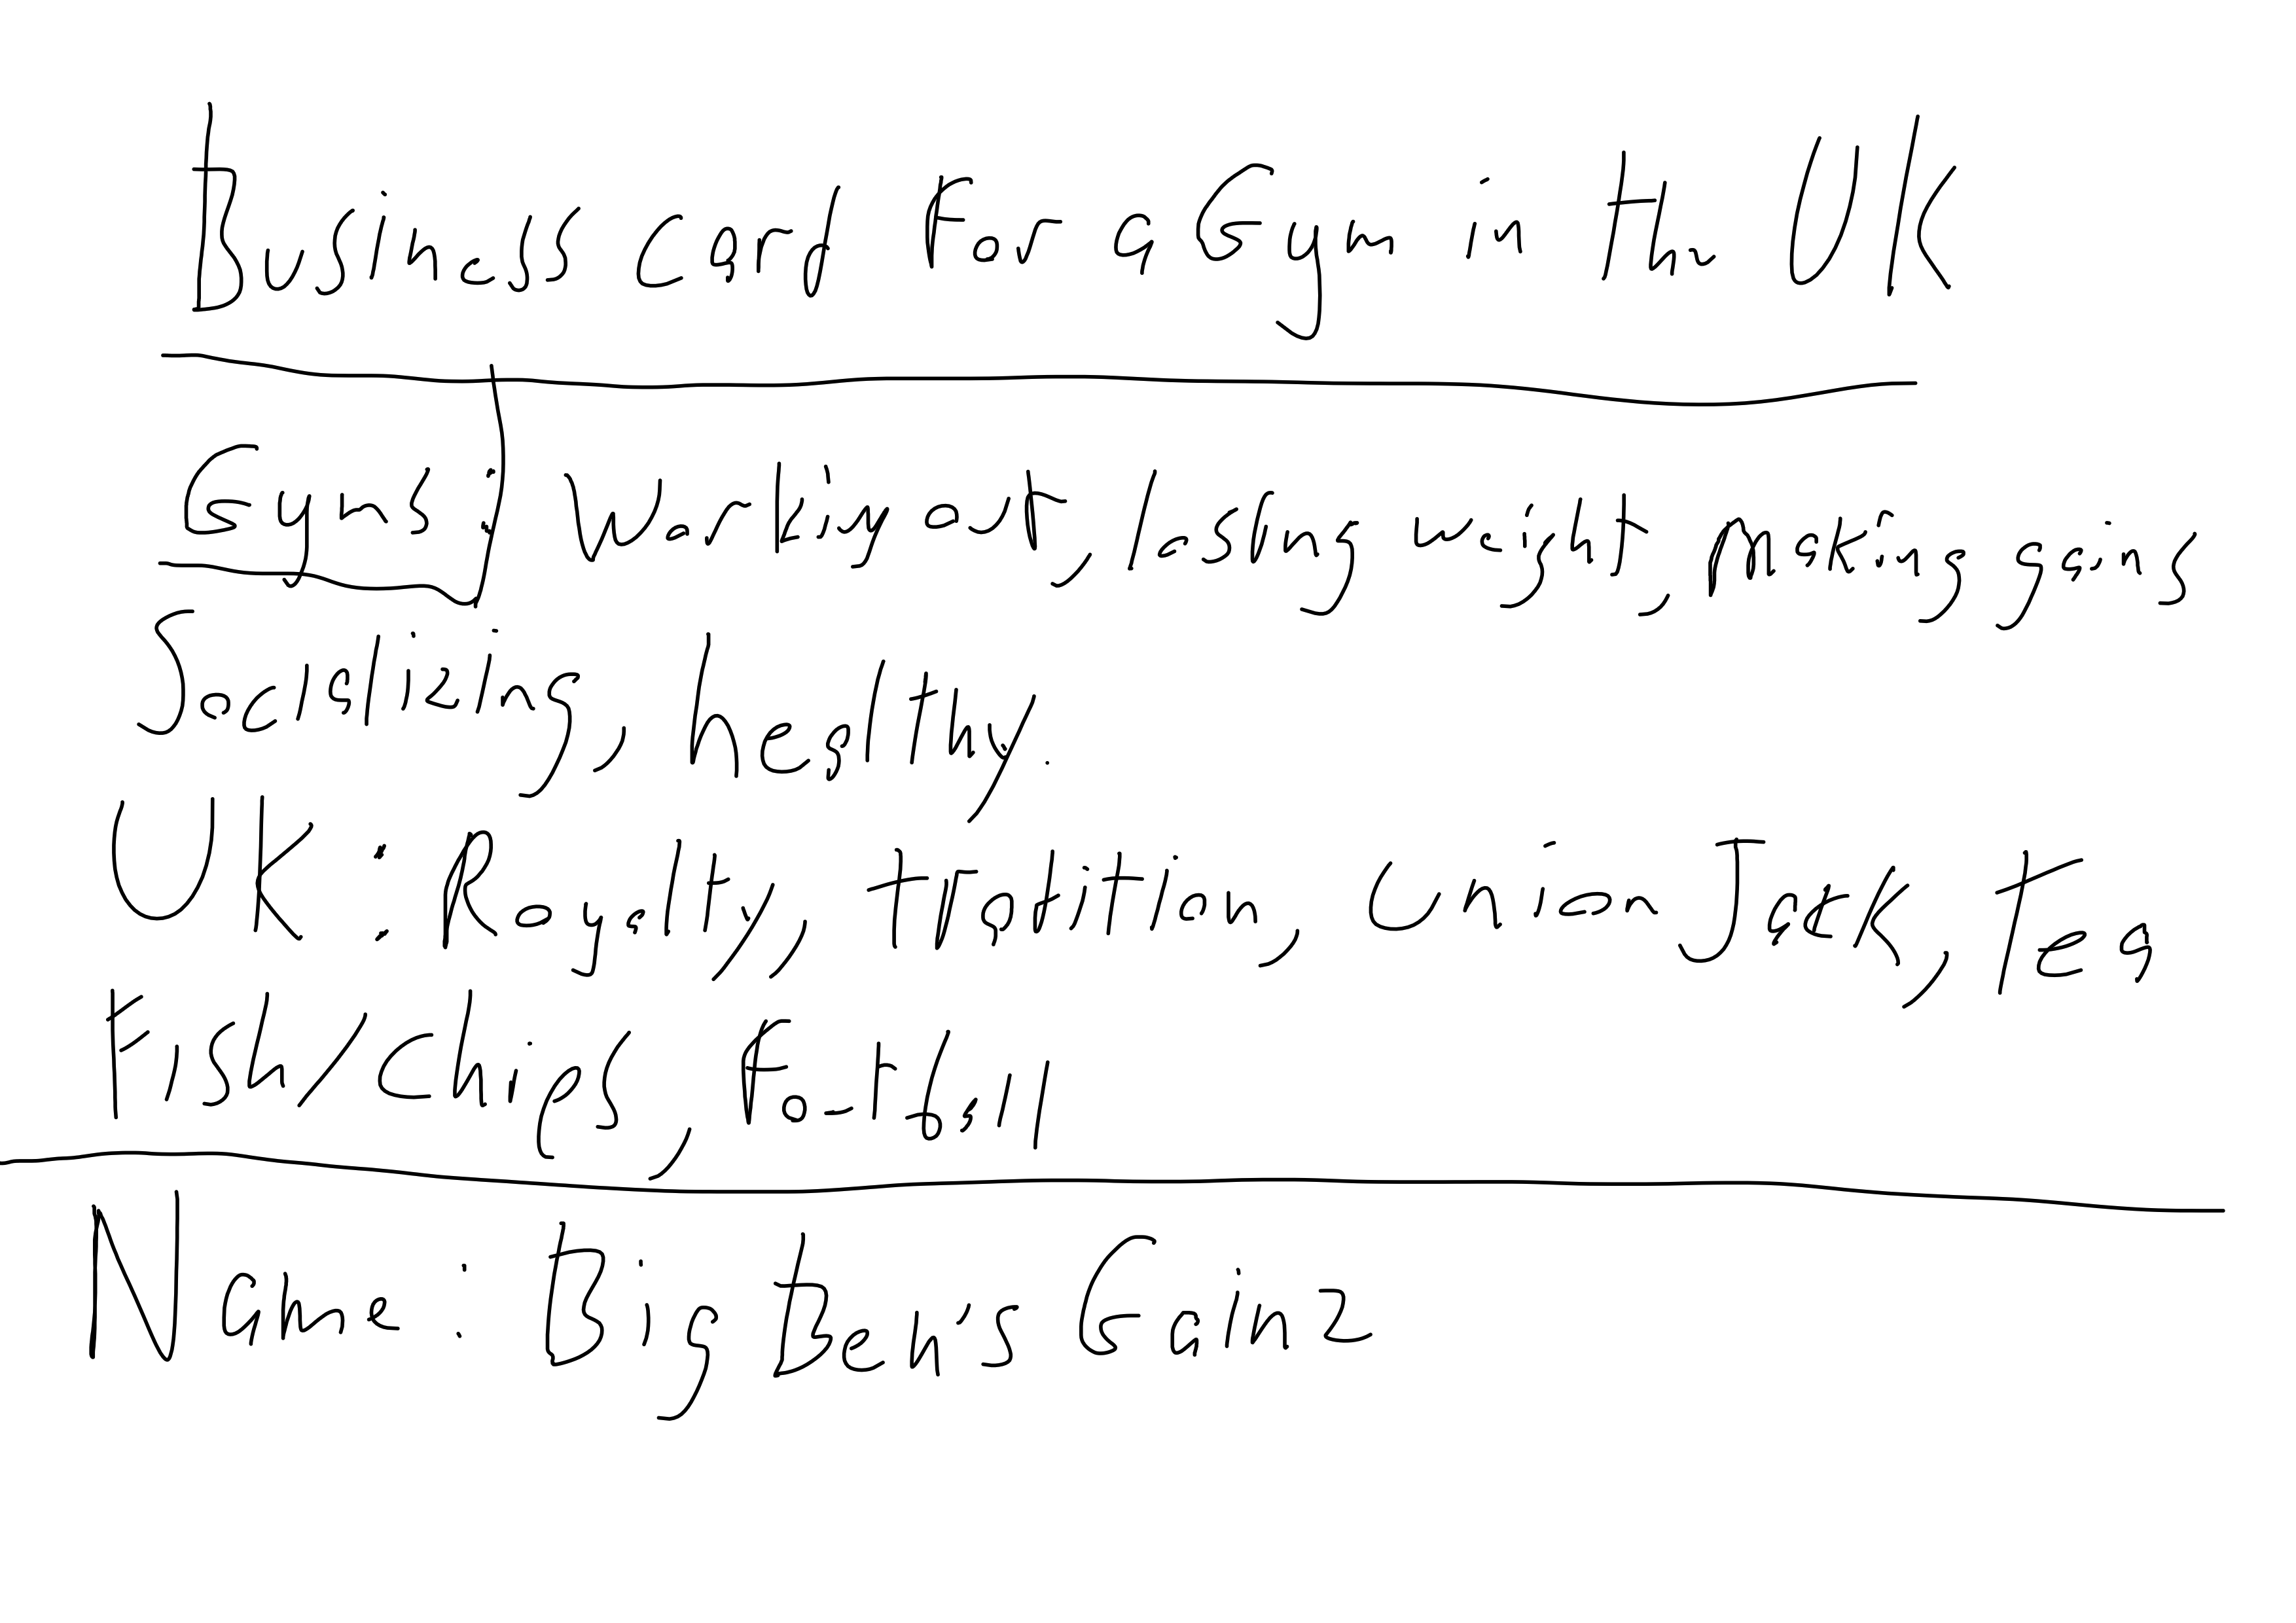 Business card For a Gym in the UK
Gyms: Working out, lossing weight, Making gains
Socializing, healthy.
UK: Royalty, tradition, Union Jack, Tea
Fish/Chips, Football
Name: Big Ben's Gainz